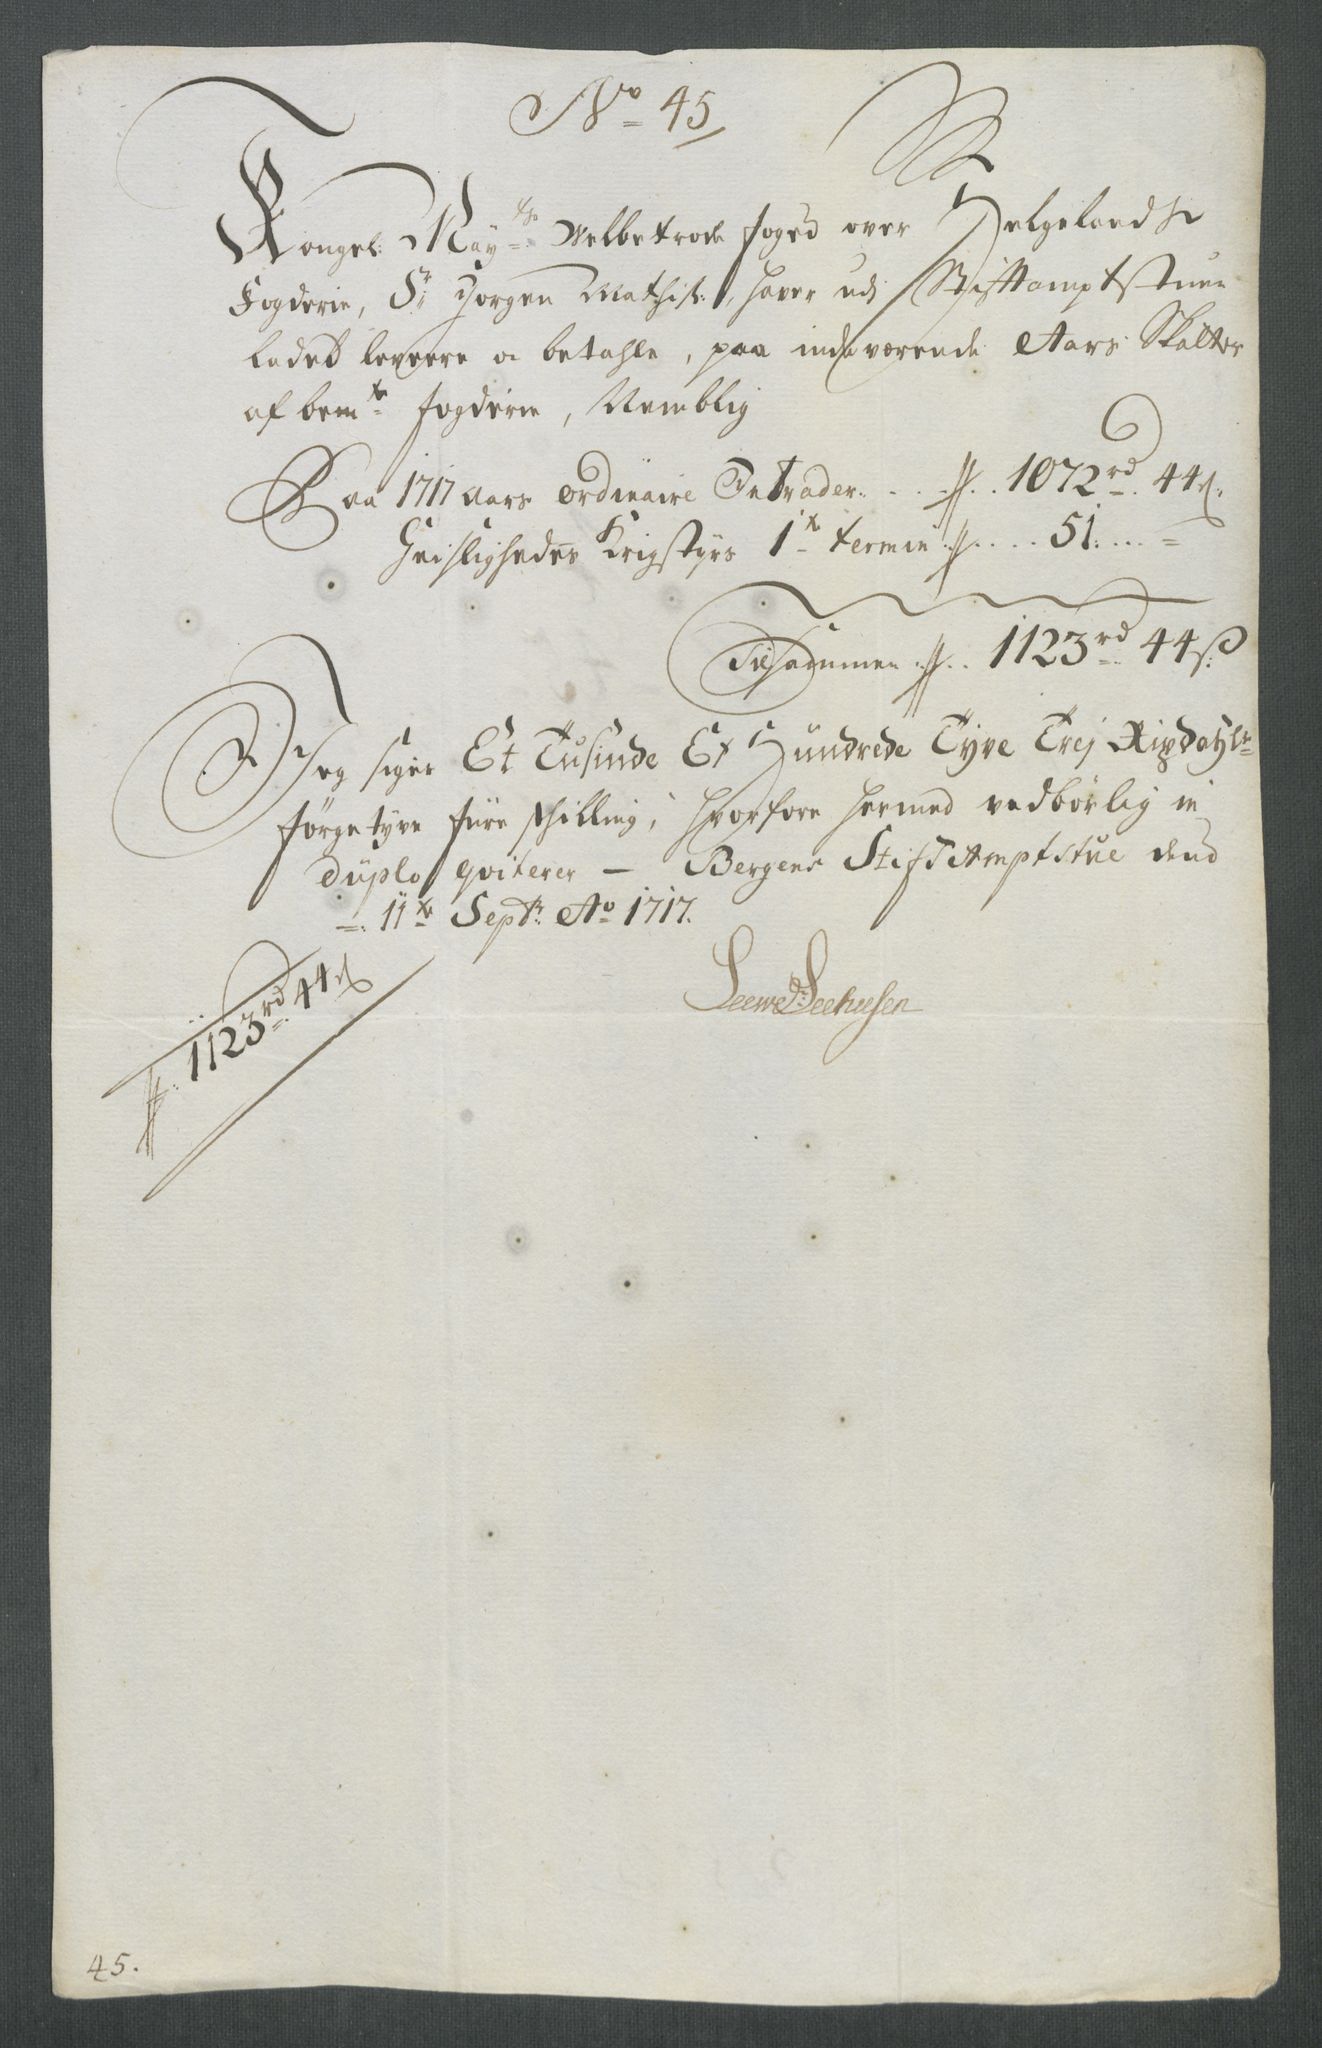 No 45
Kongel: May:ts Velbetrode foged over Helgelands
Fogderie, Sr Jørgen Mathis:, haver udj Stiftamptstuen
ladet levere og betahle, paa indeværende Aars Skatter
af bemte fogderie, Nemblig
Paa 1717 Aars ordinaire Intrader: . . . 1072 rd 44 s:
Geistlighedes Krigstyrs 1te termin . . . . 51: . . . =
Tilsammen . . 1123 rd 44 s:
Jeg siger Et Tusinde Et Hundrede Tyve Trej Rixdahlr
førgetyve fiire skilling, hvorfore hermed vedbørlig in
duplo qviterer — Bergens StiftAmptstue dend
11te Septr: Ao 1717.
Leewe Dr Seehusen
1123 rd 44 s
45.